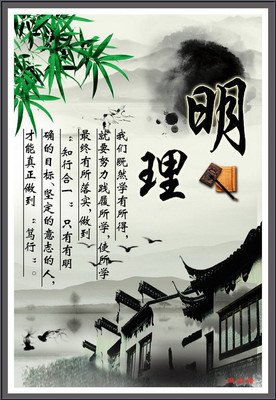 明理
我们既然学有所得，
就要努力践履所学，使所学
最终有所落实，做到
“知行合一”。只有有明
确的目标、坚定的意志的人，
才能真正做到“笃行”。